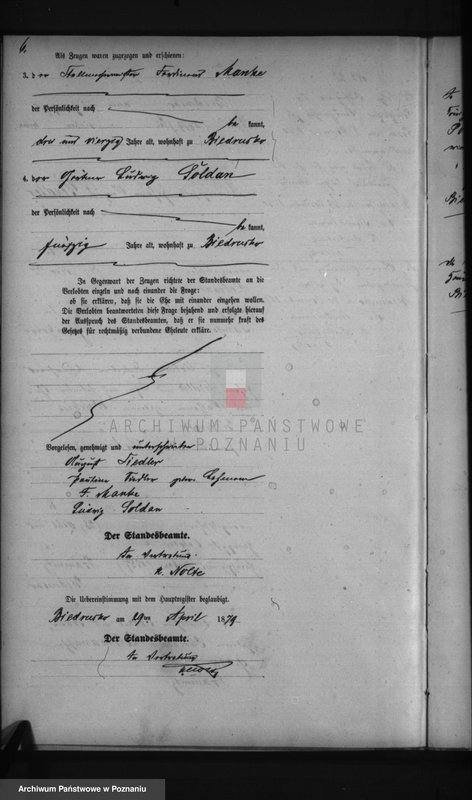 6.
Als Zeugen waren zugezogen und erschienen:
3. der Stellmachermeister Ferdinand Manke
der Persönlichkeit nach
be kannt,
drei und vierzig Jahre alt, wohnhaft zu Biedrusko
4. der Gärtner Ludwig Soldan
der Persönlichkeit nach
be kannt,
fünfzig Jahre alt, wohnhaft zu Biedrusko
In Gegenwart der Zeugen richtete der Standesbeamte an die
Verlobten einzeln und nach einander die Frage:
ob sie erklären, daß sie die Ehe mit einander eingehen wollen.
Die Verlobten beantworteten diese Frage bejahend und erfolgte hierauf
der Ausspruch des Standesbeamten, daß er sie nunmehr kraft des
Gesetzes für rechtmäßig verbundene Eheleute erkläre.
ARCHIWUM PAŃSTWOWE
W POZNANIU
Vorgelesen, genehmigt und unterschrieben
August Fiedler
Pauline Fiedler geb.
F. Manke
Ludwig Soldan
Der Standesbeamte.
In Vertretung.
Nolte
Die Uebereinstimmung mit dem Hauptregister beglaubigt.
Biedrusko am 29ten April 1879
Der Standesbeamte.
In Vertretung
Nolte
Archiwum Państwowe w Poznaniu